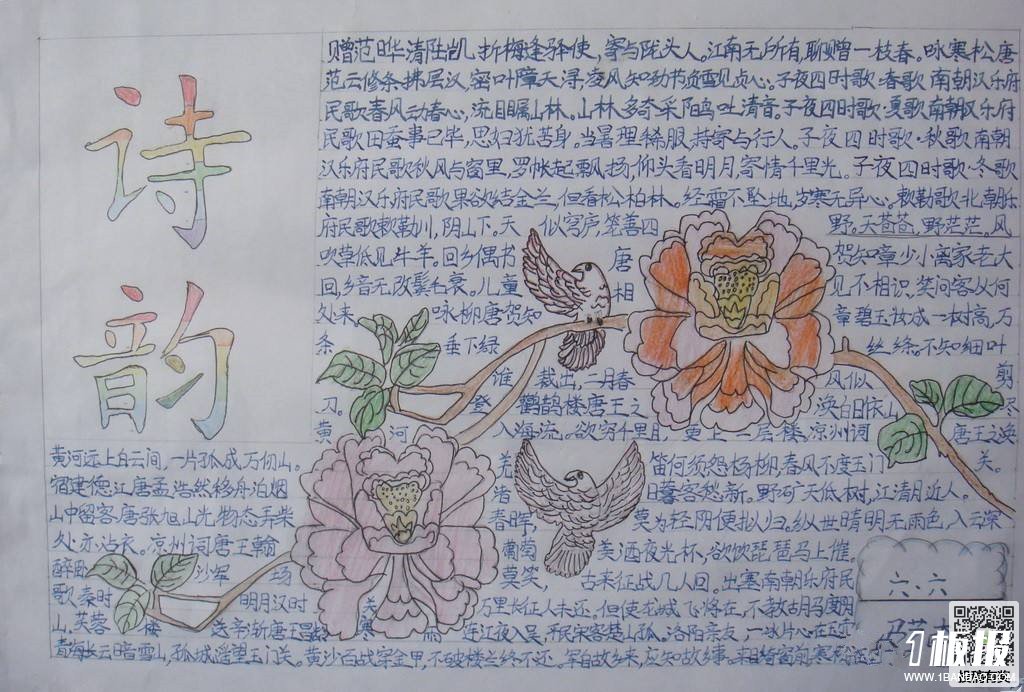 诗韵
赠范晔清陆凯 折梅逢驿使，寄与陇头人。江南无所有，聊赠一枝春。咏寒松唐
范云修条拂层汉，密叶障天浔，凌风知劲节，负雪见贞心。子夜四时歌·春歌 南朝汉乐府
民歌春风动春心，流目瞩山林。山林多奇采，阳鸟吐清音。子夜四时歌·夏歌南朝汉乐府
民歌田蚕事已毕，思妇犹苦身。当暑理絺服，持寄与行人。子夜四时歌·秋歌南朝
汉乐府民歌秋风与窗里，罗帐起飘扬，仰头看明月，寄情千里光。子夜四时歌·冬歌
南朝汉乐府民歌果欲结金兰，但看松柏林。经霜不坠地，岁寒无异心。敕勒歌北朝乐
府民歌敕勒川，阴山下。天 似穹庐，笼盖四 野。天苍苍，野茫茫。风
吹草低见牛羊。回乡偶书 唐 贺知章少小离家老大
回，乡音无改鬓毛衰。儿童 相 见不相识，笑问客从何
处来。 咏柳唐贺知 章碧玉妆成一树高，万
条 垂下绿 丝绦。不知细叶
谁 裁出，二月春 风似 剪
刀。 登 鹳鹊楼唐王之 涣白日依山 尽
黄 河 入海流。欲穷千里目，更上一层楼。凉州词 唐王之涣
黄河远上白云间，一片孤城万仞山。 羌 笛何须怨杨柳，春风不度玉门 关。
宿建德江唐孟浩然移舟泊烟 渚 日暮客愁新。野旷天低树，江清月近人。
山中留客唐张旭山光物态弄 春晖， 莫为轻阴便拟归。纵使晴明无雨色，入云深
处亦沾衣。凉州词唐王翰 葡萄 美酒夜光杯，欲饮琵琶马上催。
醉卧 沙军 场 莫笑， 古来征战几人回。出塞南朝乐府民
歌秦时 明月汉时 关 万里长征人未还。但使龙城飞将在，不教胡马度阴
山。芙蓉 楼 送辛渐唐王昌龄 寒 雨 连江夜入吴，平明
青海长云暗雪山，孤城遥望玉门关。黄沙百战穿金甲，不破楼兰终不还。
六·六
1板报
WWW.1BANBAO.COM